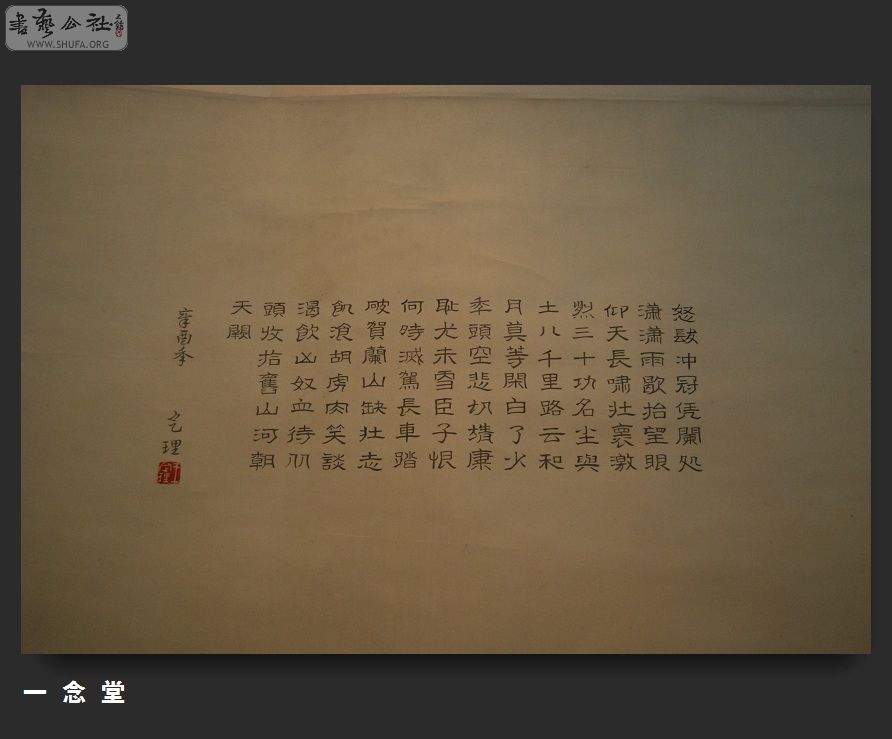 書藝公社
WWW.SHUFA.ORG
怒髮冲冠凭闌処
瀟瀟雨歇抬望眼
仰天長嘯壮褱激
烈三十功名尘與
土八千里路云和
月莫等閑白了少
秊頭空悲切靖康
耻犬未雪臣子恨
何時滅駕長車踏
破賀蘭山缺壮志
飢飡胡虏肉笑談
渴飲凶奴血待从
頭收拾舊山河朝
天闕
辛酉季
理
一念堂